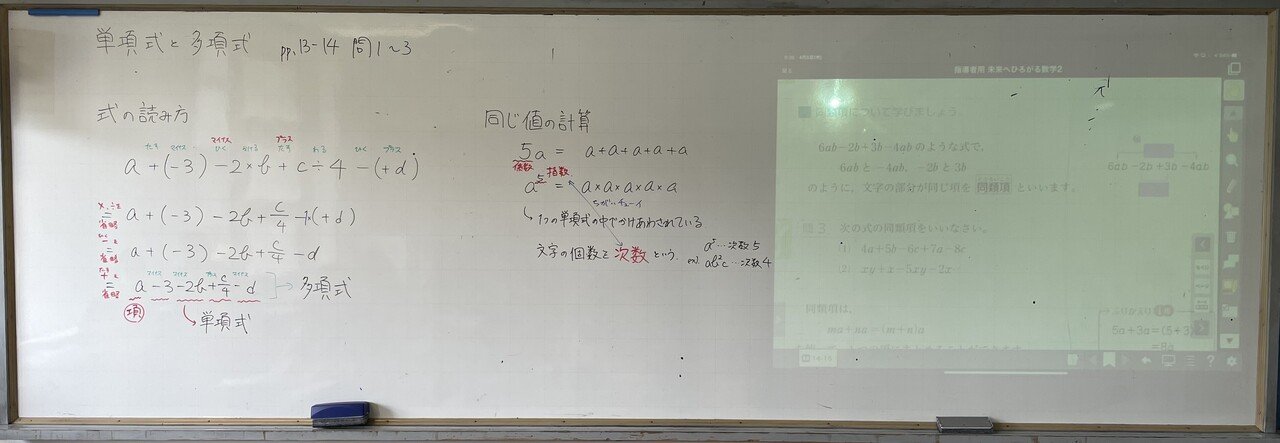 単項式と多項式 pp.13-14 問1~3
式の読み方
たす マイナス マイナス ひく かける プラス たす わる ひく プラス
a + (-3) - 2 × b + c ÷ 4 - (+d)
×, ÷を省略
= a + (-3) - 2b + c/4 - (+d)
= a + (-3) - 2b + c/4 - d
省略
マイナス マイナス プラス マイナス
= a - 3 - 2b + c/4 - d → 多項式
省略
項
単項式
同じ値の計算
5a = a+a+a+a+a
係数 指数
a⁵ = a×a×a×a×a
1つの単項式の中でかけあわされている
文字の個数を 次数 という。
a⁵…次数5
ex. ab²c…次数4
指導者用 未来へひろがる数学2
同類項について学びましょう
6ab-2b+3b-4abのような式で,
6abと-4ab, -2bと3b
のように, 文字の部分が同じ項を 同類項 といいます。
6ab-2b+3b-4ab
問3 次の式の同類項をいいなさい。
(1) 4a+5b-6c+7a-8c
(2) xy+x-5xy-2x
同類項は,
ma+na=(m+n)a
ふりかえり 1年
5a+3a=(5+3)
=8a
14-15